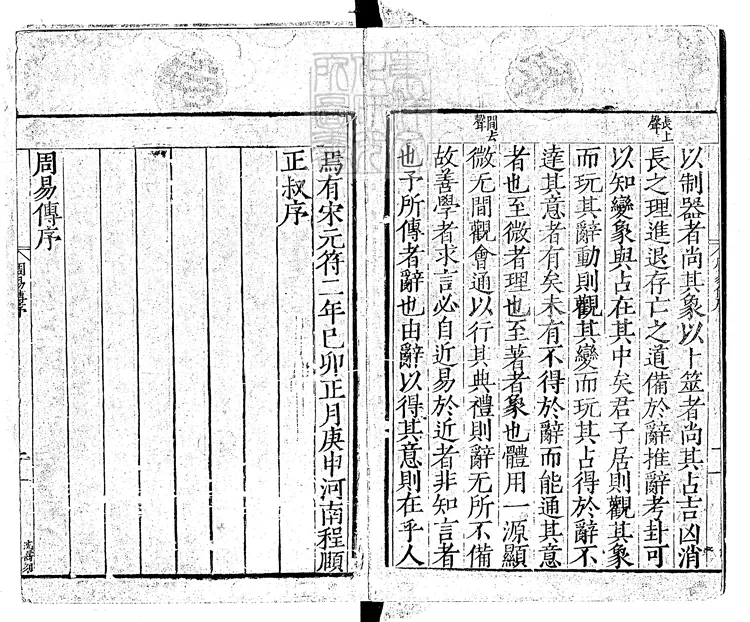 以制器者尚其象以卜筮者尚其占吉凶消
長之理進退存亡之道備於辭推辭考卦可
以知變象與占在其中矣君子居則觀其象
而玩其辭動則觀其變而玩其占得於辭不
達其意者有矣未有不得於辭而能通其意
者也至微者理也至著者象也體用一源顯
微无間觀會通以行其典禮則辭无所不備
故善學者求言必自近易於近者非知言者
也予所傳者辭也由辭以得其意則在乎人
焉有宋元符二年已卯正月庚申河南程頤
正叔序
周易傳序
長上聲
間去聲
周易傳序